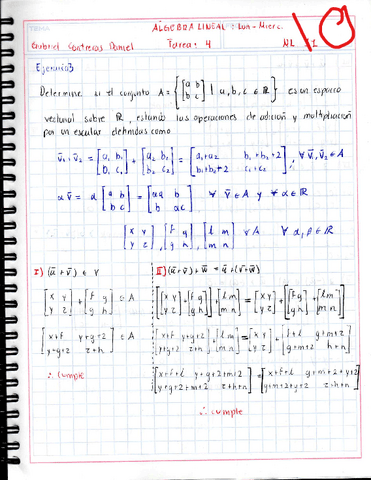 ÁLGEBRA LINEAL: Lun-Mierc.
10
Gabriel Contreras Daniel Tarea: 4 NL
Ejercicio 3
Determine si el conjunto A = { [a b; b c] | a, b, c ∈ ℝ } es un espacio
vectorial sobre ℝ, estando las operaciones de adición y multiplicación
por un escalar definidas como
v̄₁ + v̄₂ = [a₁ b₁; b₁ c₁] + [a₂ b₂; b₂ c₂] = [a₁+a₂ b₁+b₂+2; b₁+b₂+2 c₁+c₂], ∀ v̄₁, v̄₂ ∈ A
α v̄ = α [a b; b c] = [αa b; b αc] ∀ v̄ ∈ A y ∀ α ∈ ℝ
[x y; y z], [f g; g h], [l m; m n] ∀ A ∀ α, β ∈ ℝ
I) (ū + v̄) ∈ V
[x y; y z] + [f g; g h] ∈ A
[x+f y+g+2; y+g+2 z+h] ∈ A
∴ cumple
II) (ū + v̄) + w̄ = ū + (v̄ + w̄)
[[x y; y z] + [f g; g h]] + [l m; m n] = [x y; y z] + [[f g; g h] + [l m; m n]]
[x+f y+g+2; y+g+2 z+h] + [l m; m n] = [x y; y z] + [f+l g+m+2; g+m+2 h+n]
[x+f+l y+g+2+m+2; y+g+2+m+2 z+h+n] = [x+f+l g+m+2+y+2; y+m+2+g+2 z+h+n]
∴ cumple